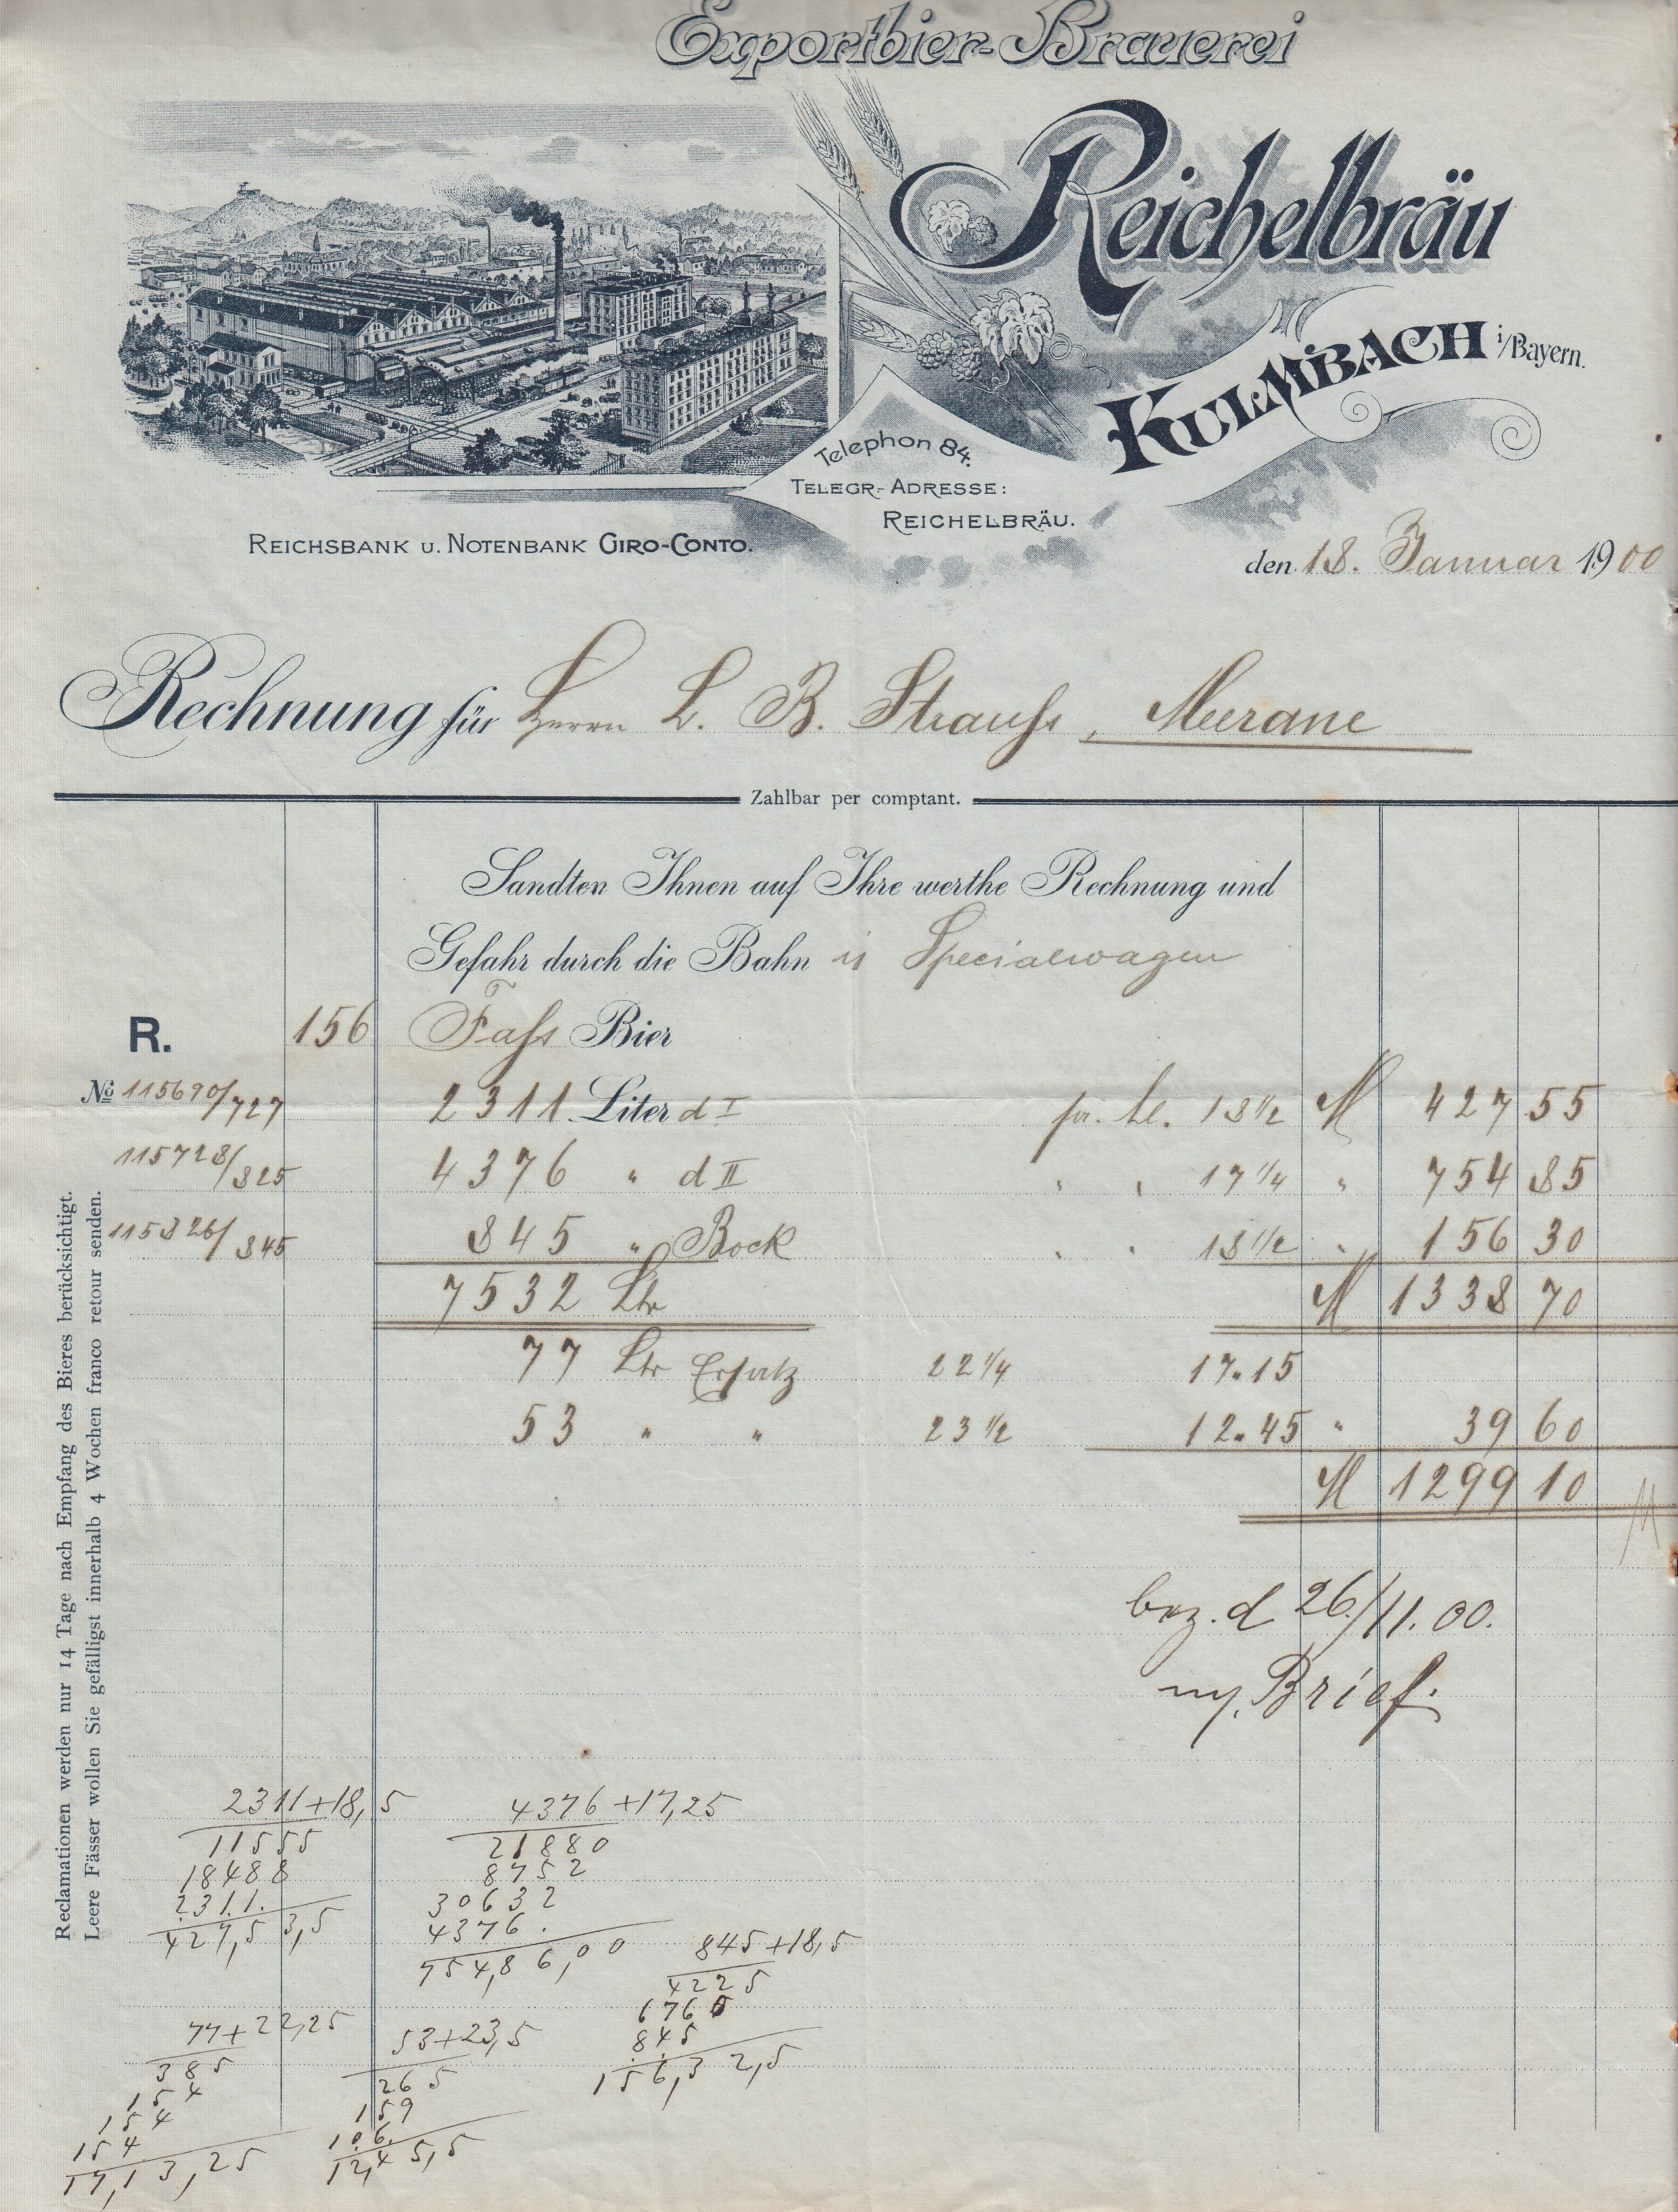 Exportbier-Brauerei
Reichelbräu
KULMBACH i/Bayern.
Telephon 84.
TELEGR.-ADRESSE:
REICHELBRÄU.
REICHSBANK U. NOTENBANK GIRO-CONTO.
den 18. Januar 1900
Rechnung für Herrn L. B. Strauss, Meerane
Zahlbar per comptant.
Sandten Ihnen auf Ihre werthe Rechnung und
Gefahr durch die Bahn is Specialwagen
R. 156 Fass Bier
No 115690/727 2311 Liter d I pr. hl. 18 1/2 M 427 55
115728/825 4376 " d II " " 17 1/4 " 754 85
115826/845 845 " Bock " " 18 1/2 " 156 30
7532 Ltr M 1338 70
77 Ltr Ersatz 22 1/4 17.15
53 " " 23 1/2 12.45 " 39 60
M 1299 10
bez. d 26/11.00.
Brief.
Reclamationen werden nur 14 Tage nach Empfang des Bieres berücksichtigt.
Leere Fässer wollen Sie gefälligst innerhalb 4 Wochen franco retour senden.
2311+18,5
11555
18488
2311.
427,53,5
4376+17,25
21880
8752
30632
4376.
754,86,00
845+18,5
4225
6760
845
156,32,5
77+22,25
385
154
154
154
17,13,25
53+23,5
265
159
106.
12,45,5